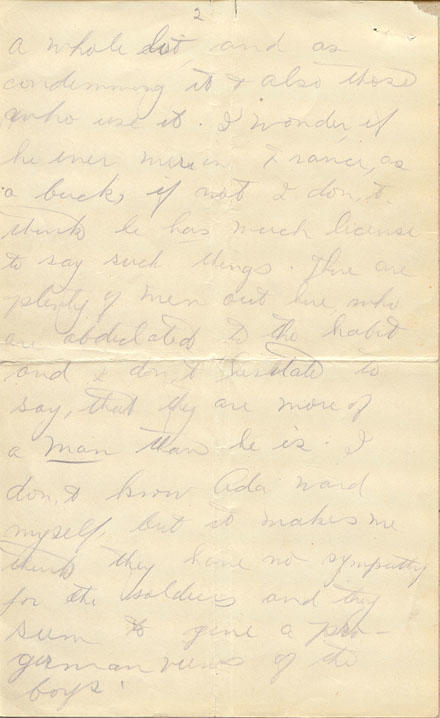 2
a whole lot, and as
condemning it & also those
who use it. I wonder, if
he ever in France, as
a buck, if not I don,t
think he has much license
to say such things. There are
plenty of men out here, who
are abdicated to the habit
and I don,t hesitate to
say, that they are more of
a man than he is. I
don,t know Ada Ward
myself, but it makes me
think they have no sympathy
for the soldiers and they
seem to give a pro-
german views of the
boys.